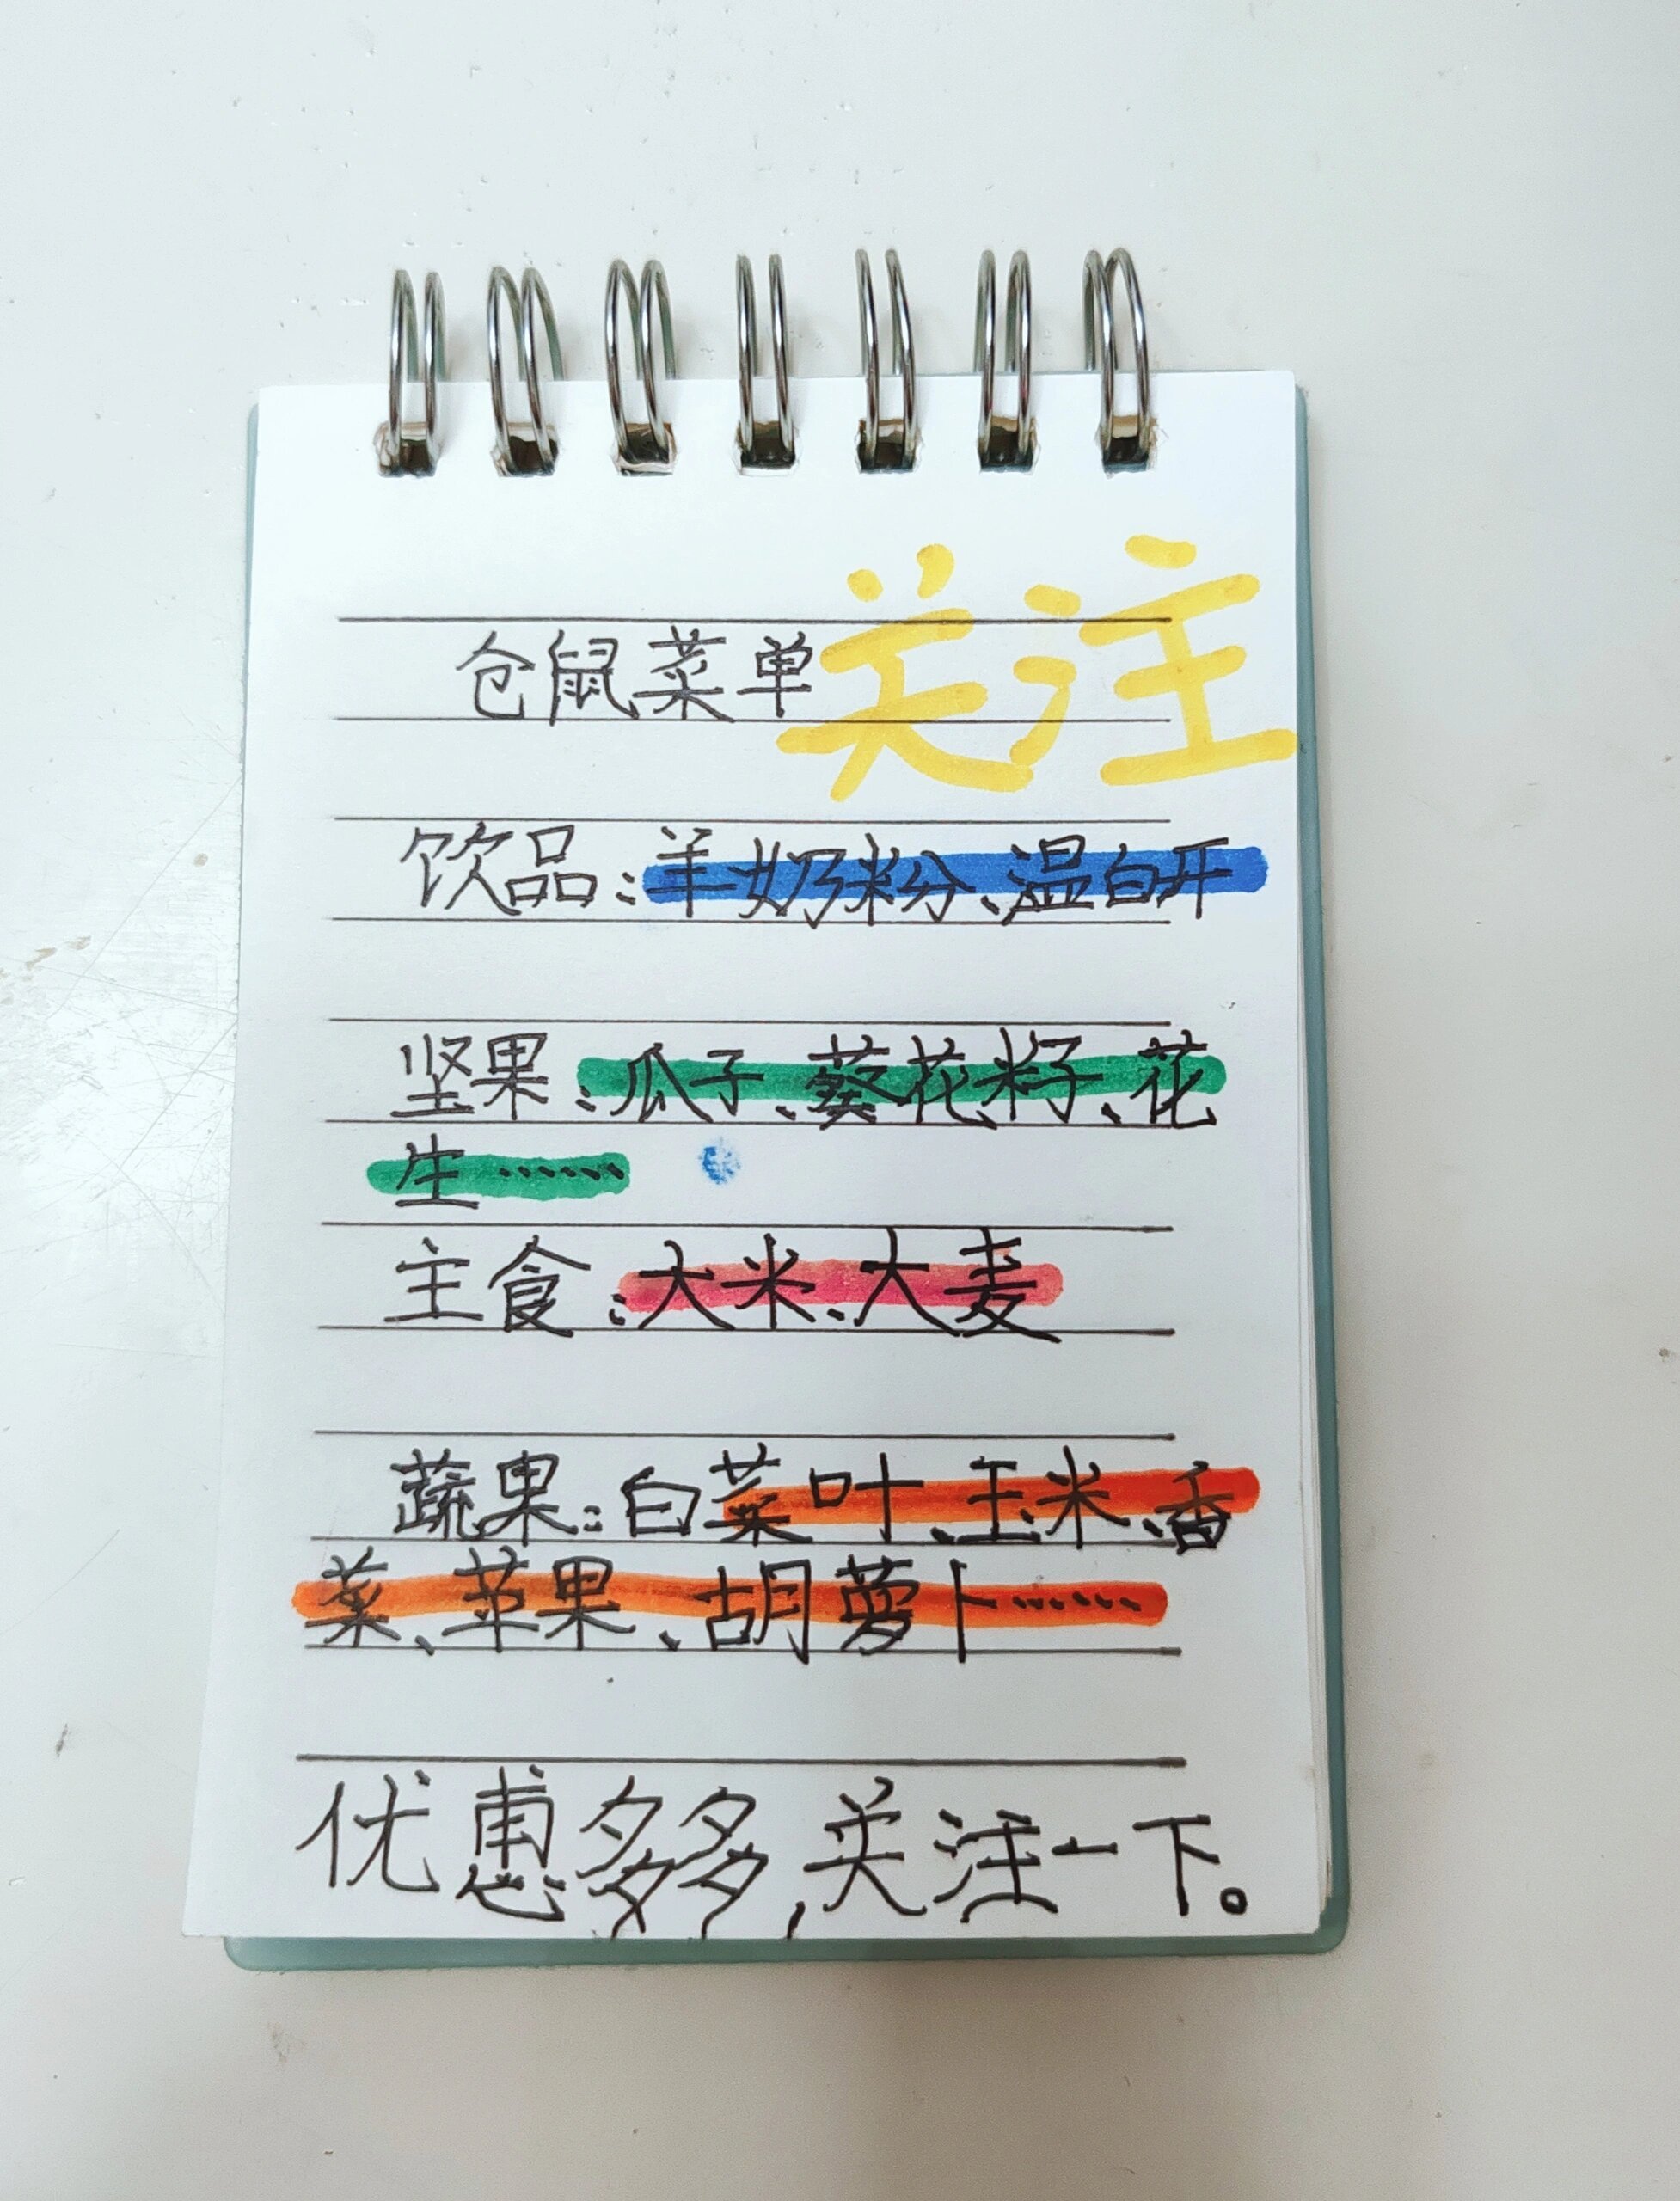 关注
仓鼠菜单
饮品：羊奶粉、温白开
坚果：瓜子、葵花籽、花
生……
主食：大米、大麦
蔬果：白菜叶、玉米、香
菜、苹果、胡萝卜……
优惠多多，关注一下。